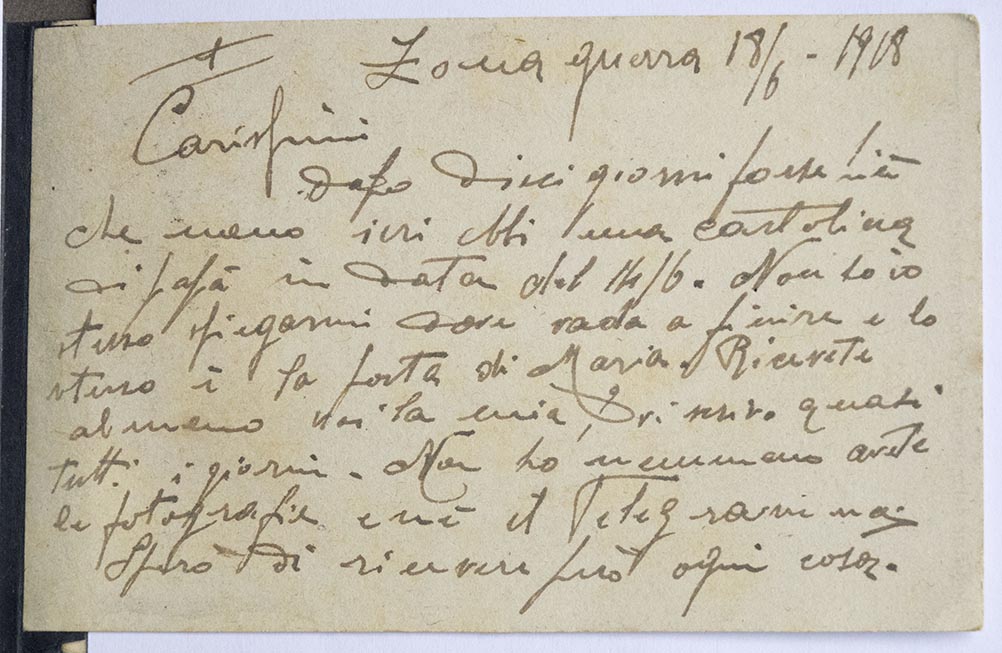 Zona guerra 18/6 - 1918
Carissimi
Dopo dieci giorni forse più
che meno ieri ebbi una cartolina
di papà in data del 14/6. Non so io
stesso spiegarmi dove vada a finire e lo
stesso è la posta di Maria. Ricevete
almeno voi la mia, Vi scrivo quasi
tutti i giorni. Non ho nemmeno avute
le fotografie e nè il Telegramma.
Spero di ricevere però ogni cosa.